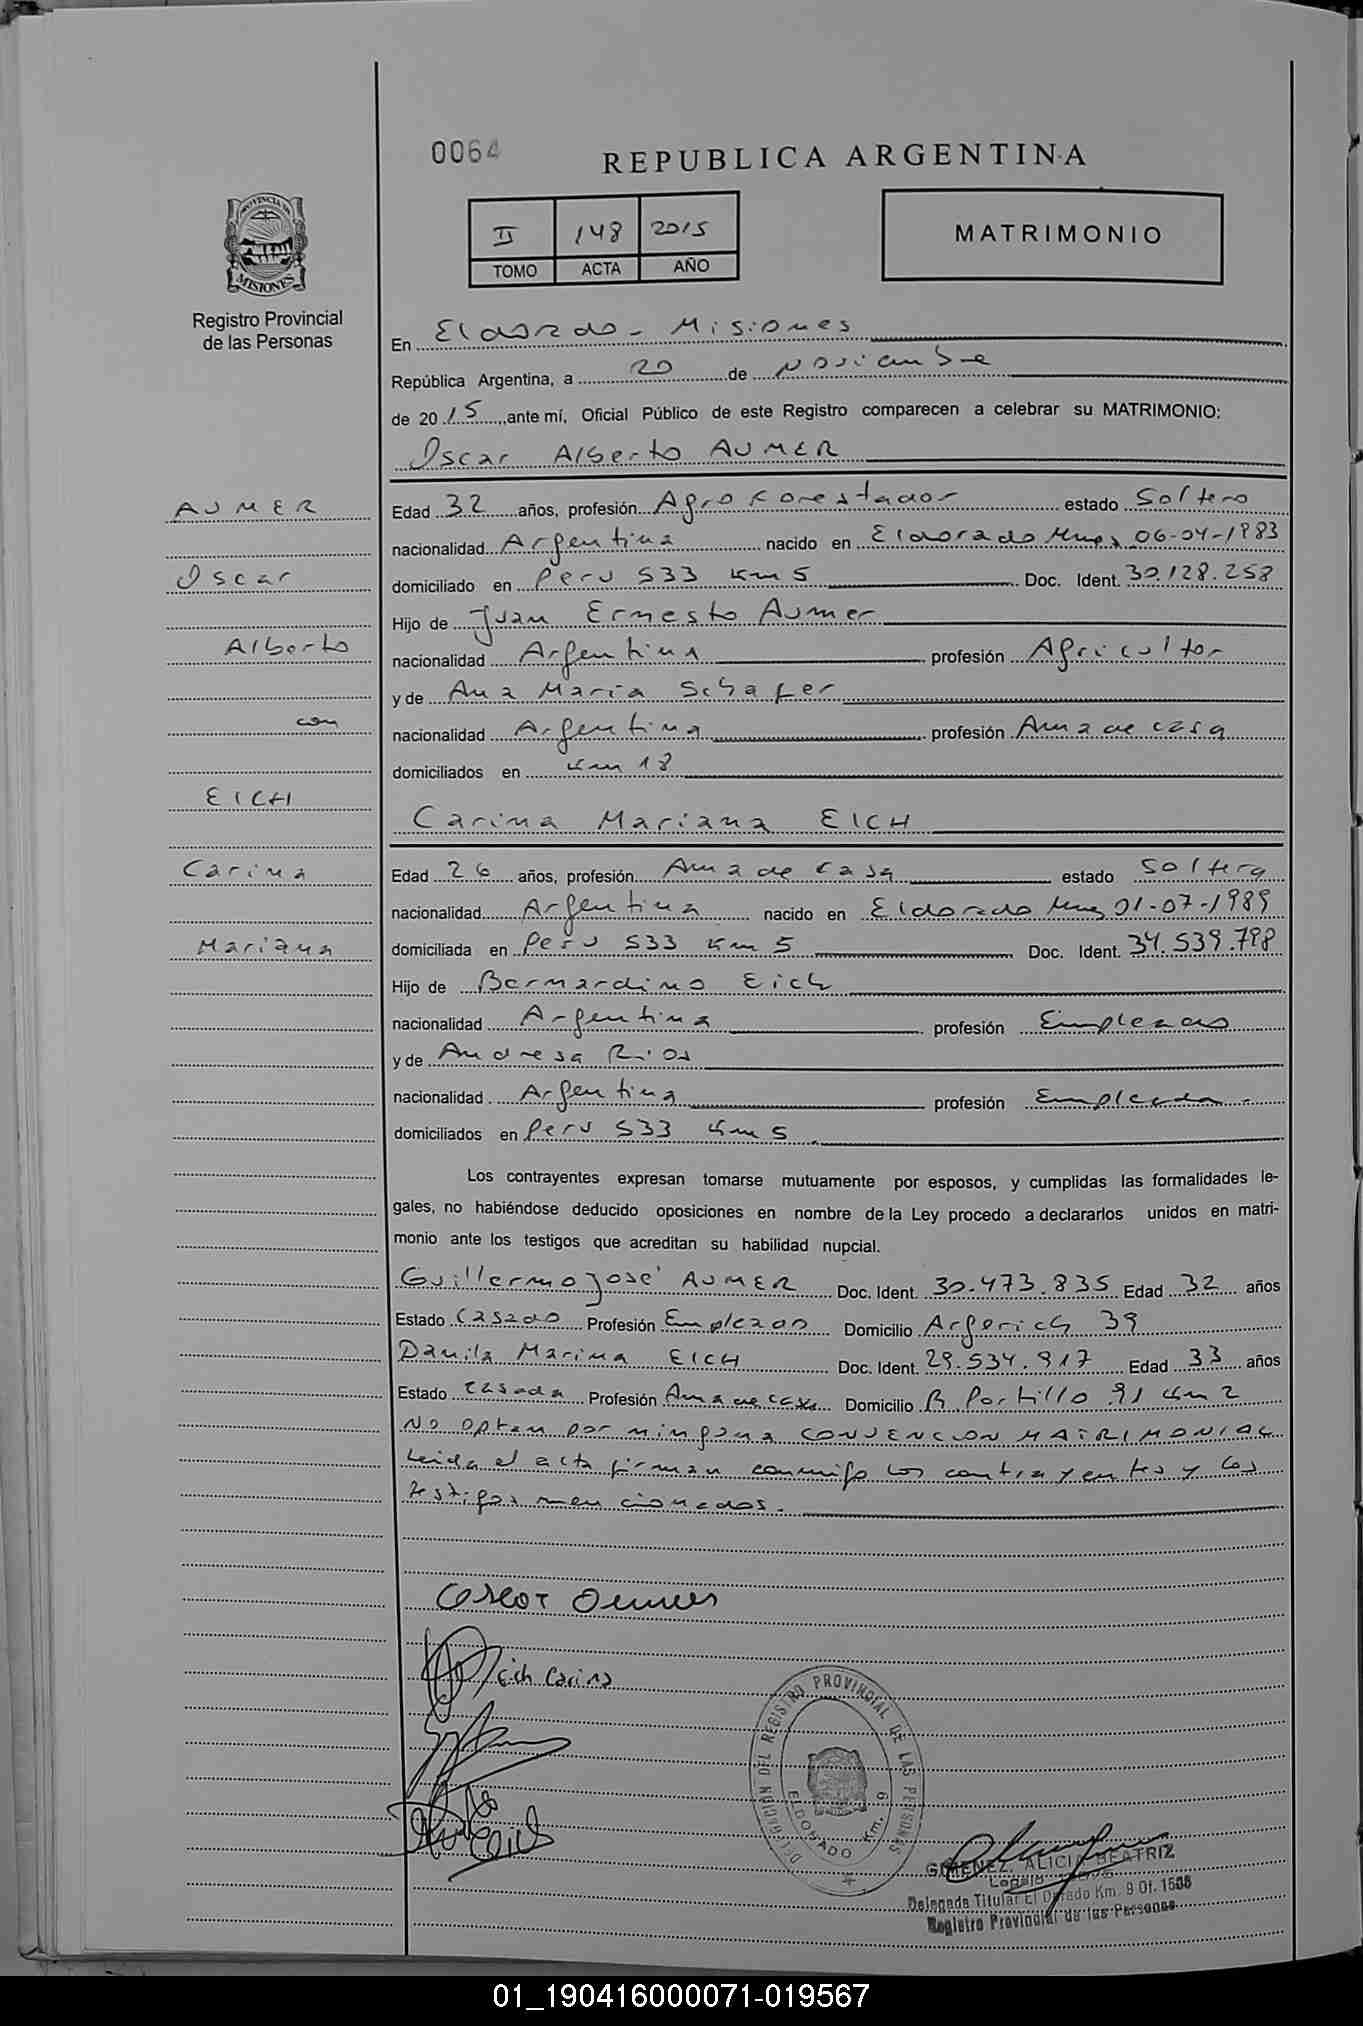 0064
REPUBLICA ARGENTINA
PROVINCIA DE
MISIONES
II 148 2015
TOMO ACTA AÑO
MATRIMONIO
Registro Provincial
de las Personas
En Eldorado - Misiones
República Argentina, a 20 de Noviembre
de 2015, ante mí, Oficial Público de este Registro comparecen a celebrar su MATRIMONIO:
Oscar Alberto AUMER
AUMER
Oscar
Alberto
con
EICH
Carina
Mariana
Edad 32 años, profesión Agro Forestador estado Soltero
nacionalidad Argentina nacido en Eldorado Mnes 06-04-1983
domiciliado en Peru 533 Km 5 Doc. Ident. 30.128.258
Hijo de Juan Ernesto Aumer
nacionalidad Argentina profesión Agricultor
y de Ana Maria Schafer
nacionalidad Argentina profesión Ama de casa
domiciliados en Km 18
Carina Mariana EICH
Edad 26 años, profesión Ama de casa estado Soltera
nacionalidad Argentina nacido en Eldorado Mnes 01-07-1989
domiciliada en Peru 533 Km 5 Doc. Ident. 34.539.798
Hijo de Bernardino Eich
nacionalidad Argentina profesión Empleado
y de Andresa Rios
nacionalidad Argentina profesión Empleada
domiciliados en Peru 533 Km 5
Los contrayentes expresan tomarse mutuamente por esposos, y cumplidas las formalidades le-
gales, no habiéndose deducido oposiciones en nombre de la Ley procedo a declararlos unidos en matri-
monio ante los testigos que acreditan su habilidad nupcial.
Guillermo José AUMER Doc. Ident. 30.473.835 Edad 32 años
Estado Casado Profesión Empleado Domicilio Argerich 39
Danila Marina EICH Doc. Ident. 29.534.917 Edad 33 años
Estado Casada Profesión Ama de casa Domicilio B Portillo 91 Km 2
No optan por ninguna CONVENCION MATRIMONIAL
Leida el acta firman conmigo los contrayentes y los
testigos mencionados.
Oscar Aumer
Eich Carina
DELEGACION DEL REGISTRO PROVINCIAL DE LAS PERSONAS
ELDORADO Km. 9
GIMENEZ, ALICIA BEATRIZ
Legajo
Delegada Titular El Dorado Km. 9 Of. 1506
Registro Provincial de las Personas
01_190416000071-019567